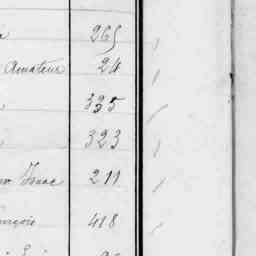 265
Amateur 24
325
323
Isaac 211
ançois 418